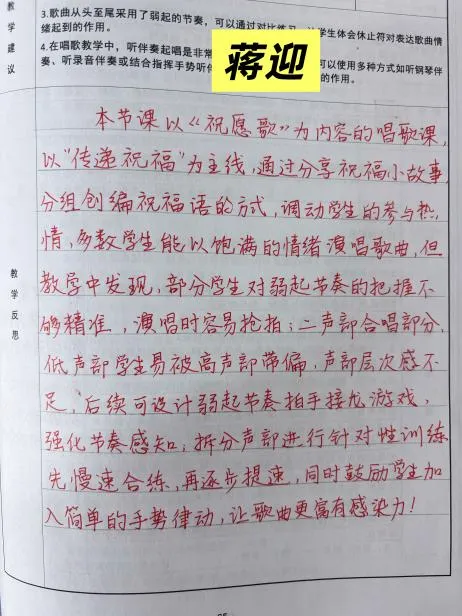 教学建议
3.歌曲从头至尾采用了弱起的节奏，可以通过对比练习，让学生体会休止符对表达歌曲情
绪起到的作用。
4.在唱歌教学中，听伴奏起唱是非常
可以使用多种方式如听钢琴伴
奏、听录音伴奏或结合指挥手势听伴
的作用。
蒋迎
教学反思
本节课以“祝愿歌”为内容的唱歌课，
以“传递祝福”为主线，通过分享祝福小故事
分组创编祝福语的方式，调动学生的参与热
情，多数学生能以饱满的情绪演唱歌曲，但
教学中发现，部分学生对弱起节奏的把握不
够精准，演唱时容易抢拍；二声部合唱部分，
低声部学生易被高声部带偏，声部层次感不
足，后续可设计弱起节奏拍手接龙游戏，
强化节奏感知；拆分声部进行针对性训练
先慢速合练，再逐步提速，同时鼓励学生加
入简单的手势律动，让歌曲更富有感染力！